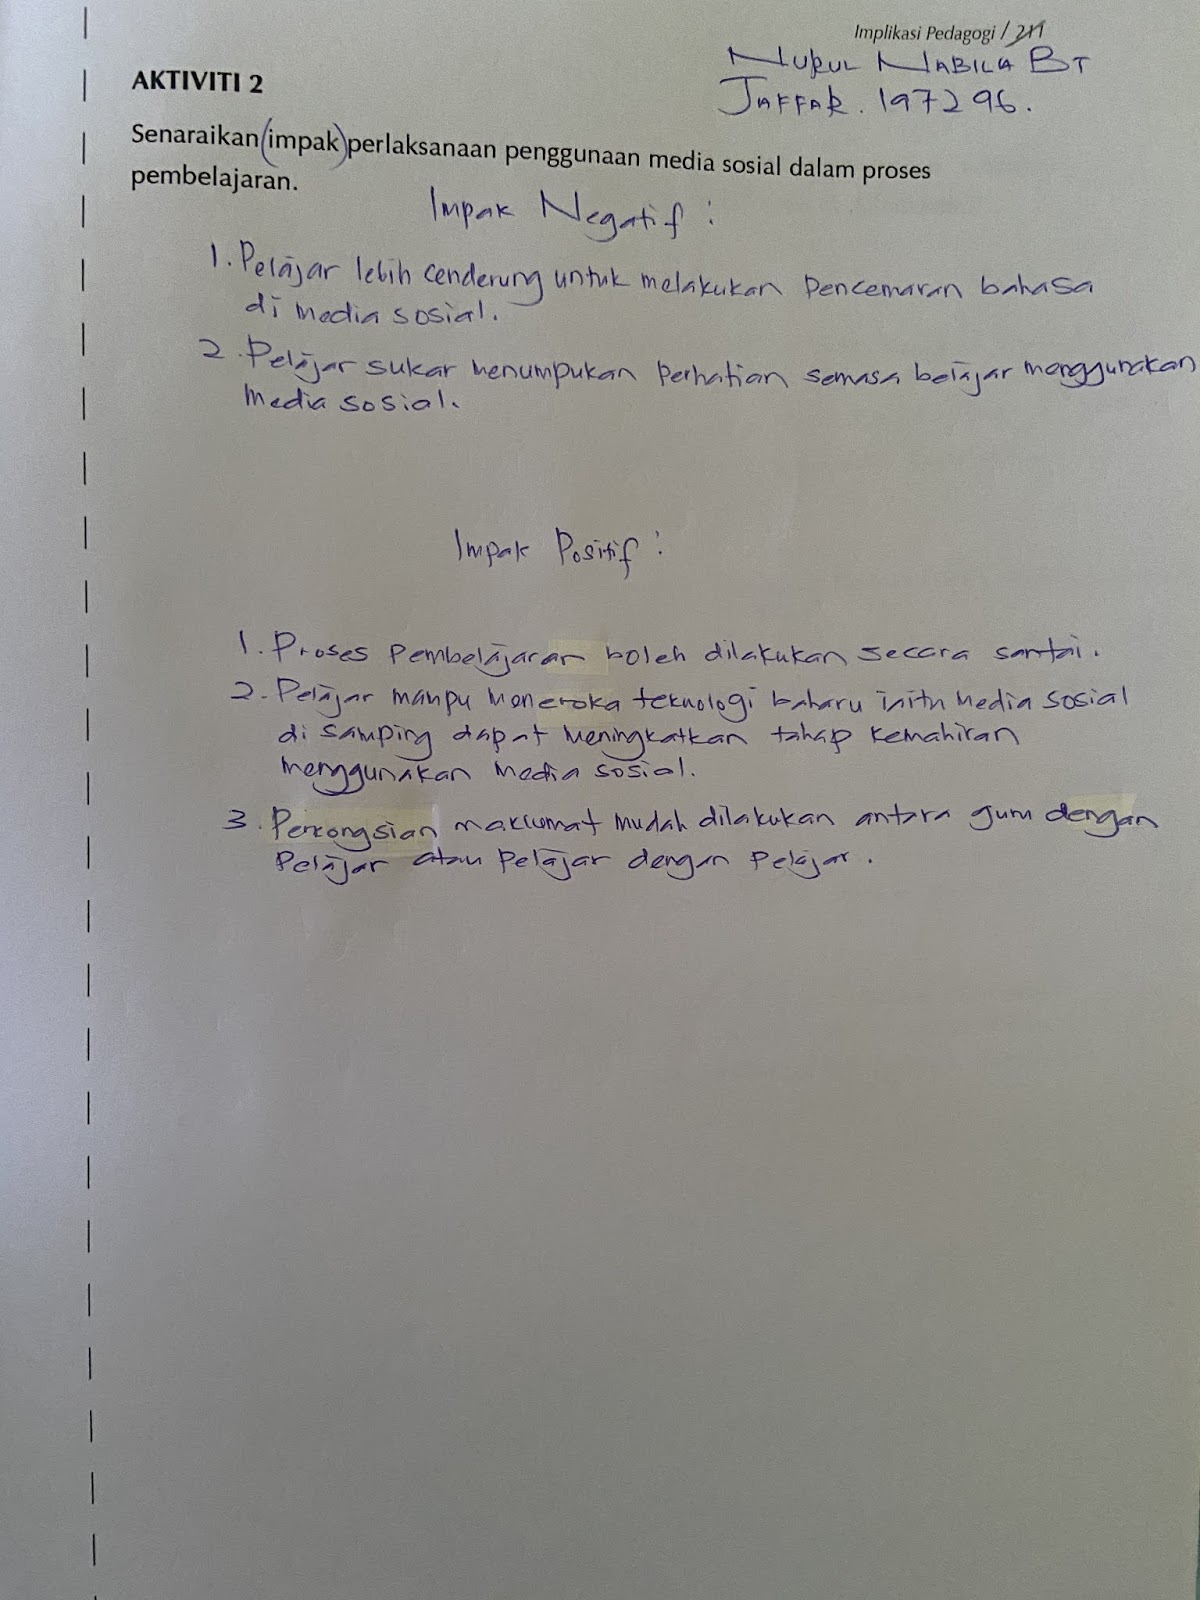 Implikasi Pedagogi / 211
NURUL NABILA BT
JAFFAR. 197296.
AKTIVITI 2
Senaraikan (impak) perlaksanaan penggunaan media sosial dalam proses
pembelajaran.
Impak Negatif :
1. Pelajar lebih cenderung untuk melakukan pencemaran bahasa
di media sosial.
2. Pelajar sukar menumpukan perhatian semasa belajar menggunakan
media sosial.
Impak Positif :
1. Proses pembelajaran boleh dilakukan secara santai.
2. Pelajar mampu meneroka teknologi baharu iaitu media sosial
di samping dapat meningkatkan tahap kemahiran
menggunakan media sosial.
3. Perkongsian maklumat mudah dilakukan antara guru dengan
pelajar atau pelajar dengan pelajar.